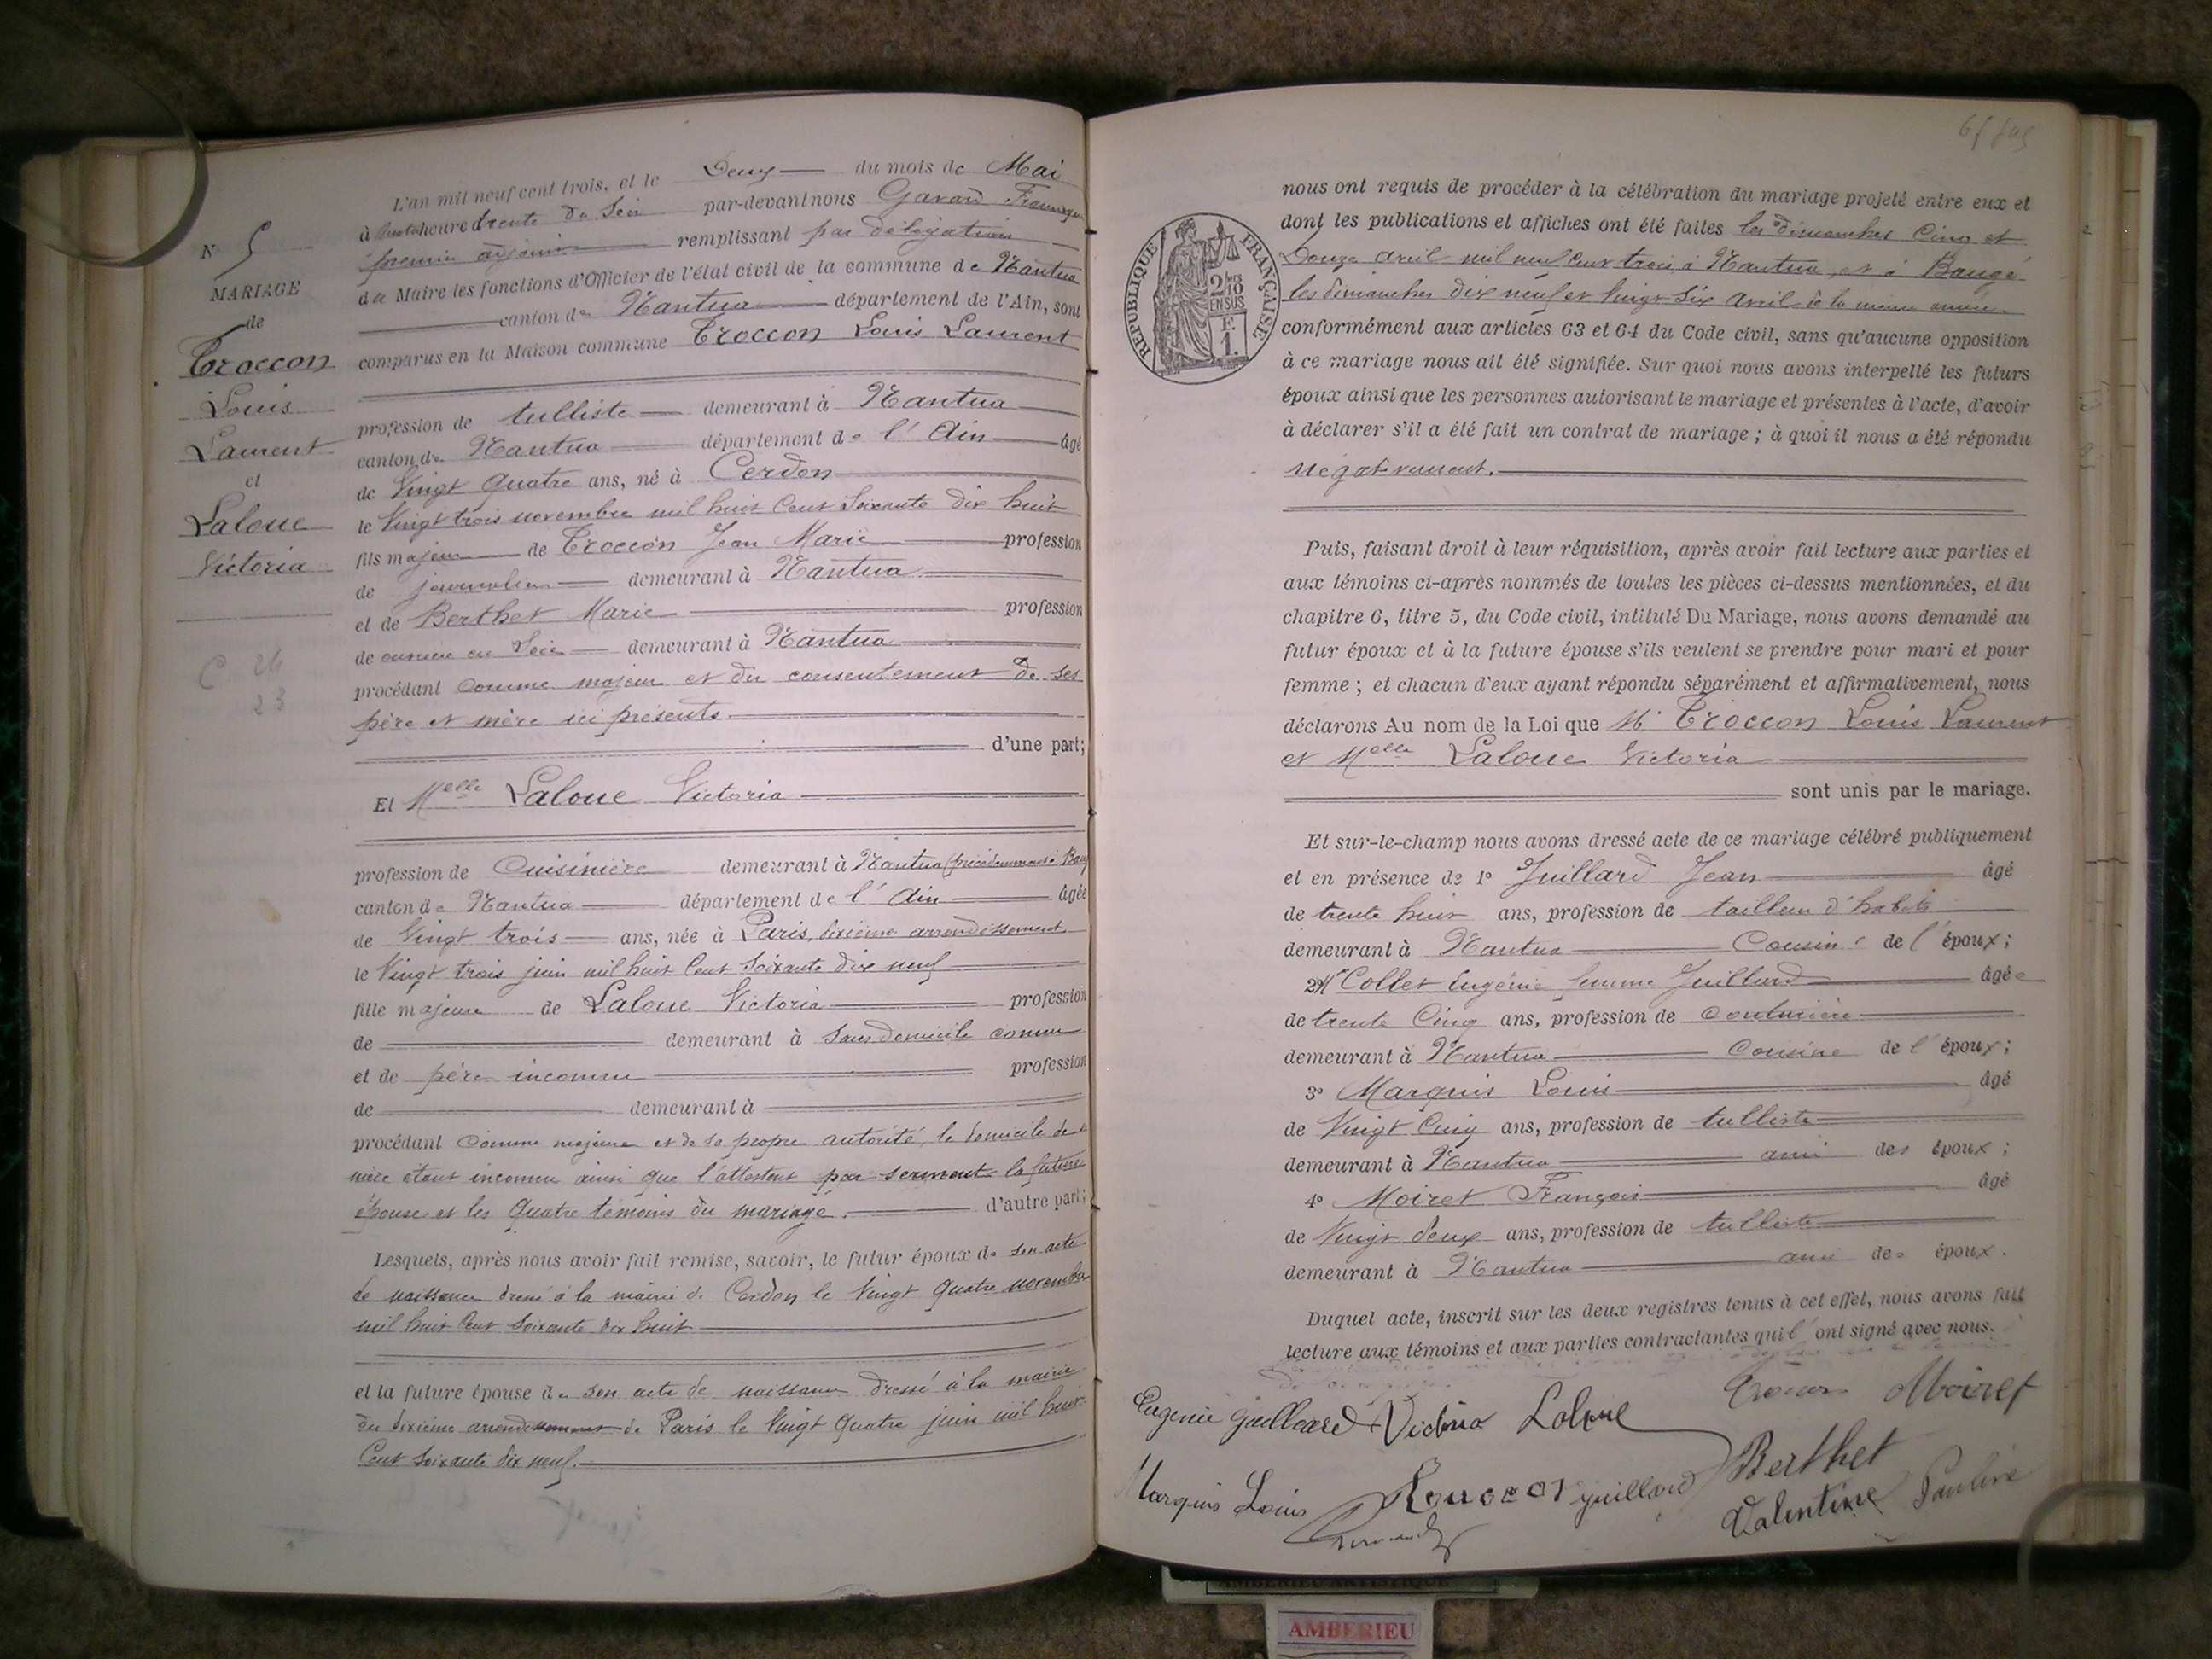 L'an mil neuf cent trois, et le Deux du mois de Mai
à heure trente du Soir par-devant nous Gavard
premier adjoint remplissant par délégation
du Maire les fonctions d'Officier de l'état civil de la commune de Nantua
canton de Nantua département de l'Ain, sont
comparus en la Maison commune Troccon Louis Laurent
N° 5
MARIAGE
de
Troccon
Louis
Laurent
et
Laloue
Victoria
C 24
23
profession de tulliste demeurant à Nantua
canton de Nantua département de l'Ain âgé
de Vingt quatre ans, né à Cerdon
le Vingt trois novembre mil huit Cent Soixante dix huit
fils majeur de Troccon Jean Marie profession
de journalier demeurant à Nantua
et de Berthet Marie profession
de ouvrière en Soie demeurant à Nantua
procédant comme majeur et du consentement de ses
père et mère ici présents
d'une part;
Et Melle Laloue Victoria
profession de Cuisinière demeurant à Nantua (précédemment à
canton de Nantua département de l'Ain âgée
de Vingt trois ans, née à Paris, dixième arrondissement
le Vingt trois juin mil huit Cent Soixante dix neuf
fille majeure de Laloue Victoria profession
de demeurant à Sans domicile connu
et de père inconnu profession
de demeurant à
procédant comme majeure et de sa propre autorité, le domicile de
mère étant inconnu ainsi que l'attestent par serment la future
épouse et les quatre témoins du mariage. d'autre part;
Lesquels, après nous avoir fait remise, savoir, le futur époux de son acte
de naissance dressé à la mairie de Cerdon le Vingt quatre novembre
mil huit Cent Soixante dix huit
et la future épouse de son acte de naissance dressé à la mairie
du dixième arrondissement de Paris le Vingt quatre juin mil huit
Cent Soixante dix neuf.
RÉPUBLIQUE FRANÇAISE
2/10
EN SUS
F.
1.
nous ont requis de procéder à la célébration du mariage projeté entre eux et
dont les publications et affiches ont été faites les dimanches Cinq et
Douze avril mil neuf Cent trois à Nantua, et à Baugé
les dimanches dix neuf et Vingt Six avril de la même année.
conformément aux articles 63 et 64 du Code civil, sans qu'aucune opposition
à ce mariage nous ait été signifiée. Sur quoi nous avons interpellé les futurs
époux ainsi que les personnes autorisant le mariage et présentes à l'acte, d'avoir
à déclarer s'il a été fait un contrat de mariage ; à quoi il nous a été répondu
négativement.
Puis, faisant droit à leur réquisition, après avoir fait lecture aux parties et
aux témoins ci-après nommés de toutes les pièces ci-dessus mentionnées, et du
chapitre 6, titre 5, du Code civil, intitulé Du Mariage, nous avons demandé au
futur époux et à la future épouse s'ils veulent se prendre pour mari et pour
femme ; et chacun d'eux ayant répondu séparément et affirmativement, nous
déclarons Au nom de la Loi que Mr Troccon Louis Laurent
et Melle Laloue Victoria
sont unis par le mariage.
Et sur-le-champ nous avons dressé acte de ce mariage célébré publiquement
et en présence de 1° Juillard Jean âgé
de trente huit ans, profession de tailleur d'habits
demeurant à Nantua Cousin de l'époux;
2° Collet Eugénie femme Juillard âgée
de trente Cinq ans, profession de Couturière
demeurant à Nantua Cousine de l'époux;
3° Marquis Louis âgé
de Vingt Cinq ans, profession de tulliste
demeurant à Nantua ami des époux ;
4° Moiret François âgé
de Vingt deux ans, profession de tulliste
demeurant à Nantua ami des époux.
Duquel acte, inscrit sur les deux registres tenus à cet effet, nous avons fait
lecture aux témoins et aux parties contractantes qui l'ont signé avec nous.
Eugenie Victoria Laloue Moiret
Marquis Louis Berthet
Valentine Pauline
AMBERIEU ARTISTIQUE
AMBERIEU